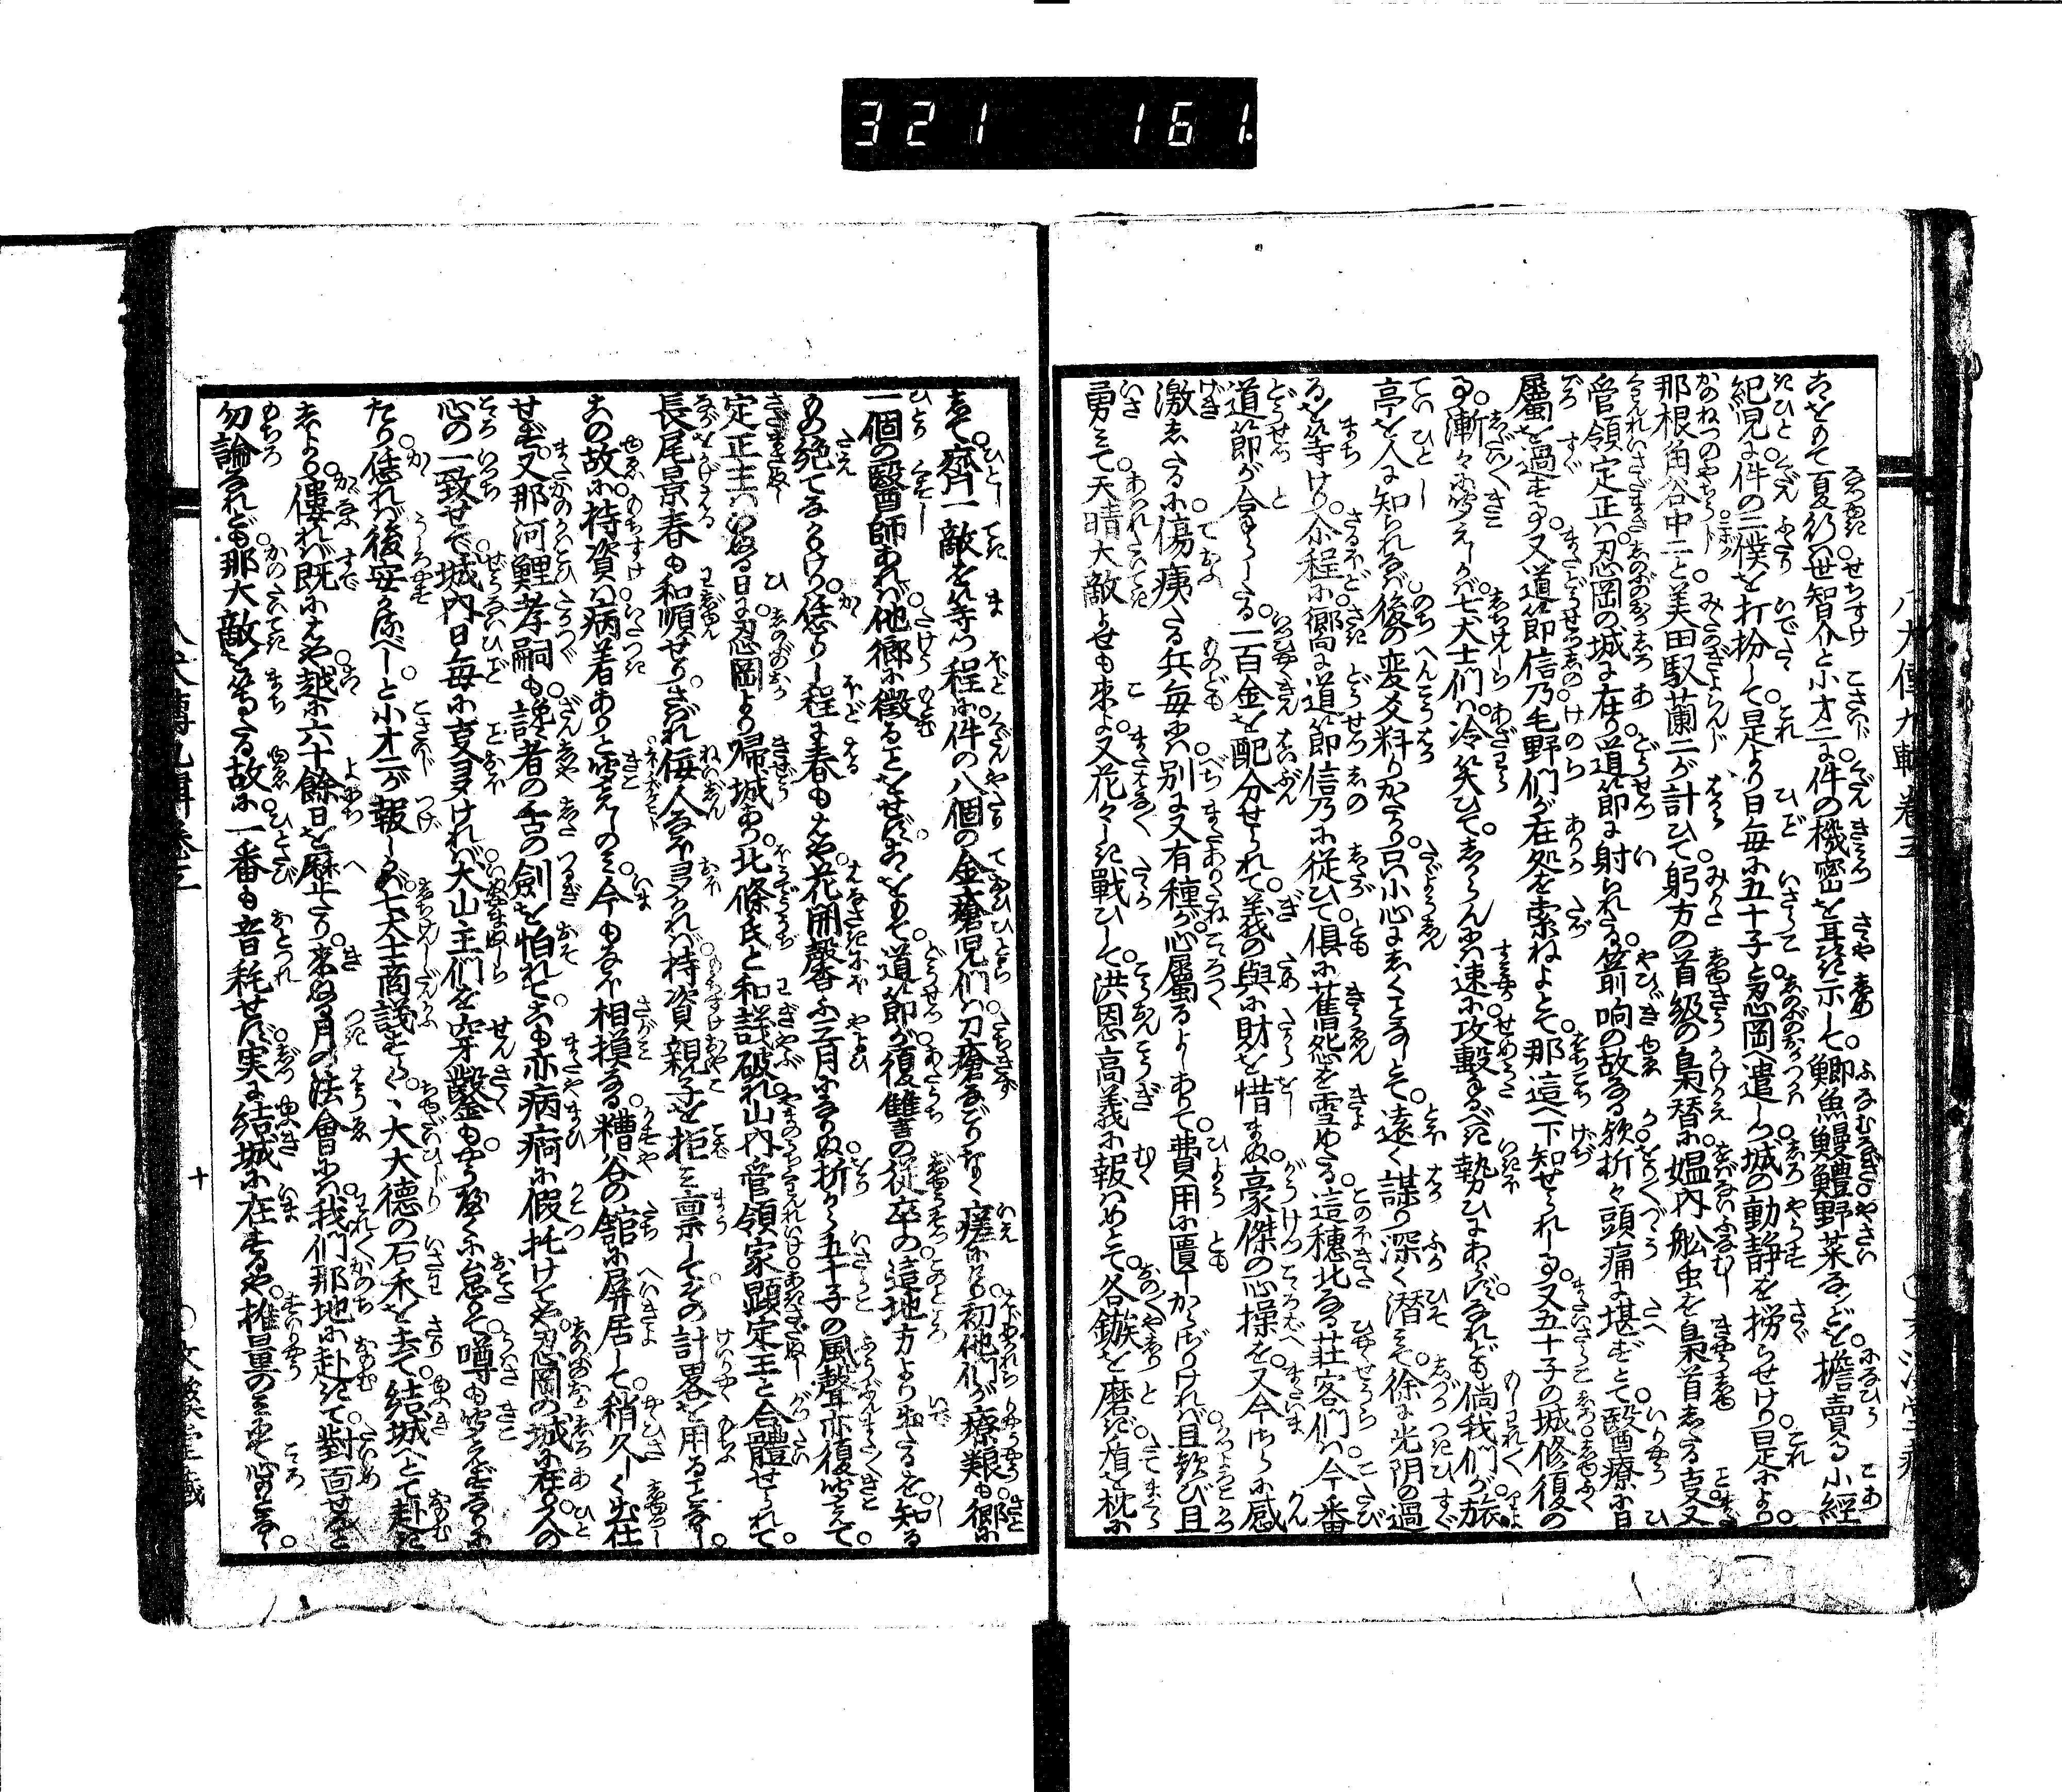 321 161.
八犬傳九輯卷三
こゝをもて夏行は世智介と小才二に件の機密を耳語示して鯽魚鰻鱺野菜などを擔賣る小經
紀兒に件の二僕を打扮して是より日毎に五十子と忍岡へ遣しつ城の動靜を撈らせけり是により
那根角谷中二と美田馭蘭二が計ひて躬方の首級の梟替に媼内舩虫を梟首したる支又
管領定正は忍岡の城に在り道節に射られたる箭响の故なる欤折々頭痛に堪ずとて醫療に日
屬を過する又道節信乃毛野們が在処を索ねよとて那這へ下知せられし支又五十子の城修復の
事漸々に聞えしかば七犬士們は冷笑ひてしからんには速に攻擊するべき勢ひにあらずなれども倘我們が旅
亭を人に知られなば後の変災料りかたり只小心にしくことなしとて遠く謀り深く潛みて徐に光阴の過
るを等けり介程に郷向に道節信乃に從ひて俱に舊怨を雪めたる這穗北なる莊客們は今番
道節が合せしたる一百金を配分せられて義の與に財を惜まぬ豪傑の心操を又今さらに感
激したるに傷痍たる兵毎には別に又有種が心屬るよしあれて費用に匱しからざりければ且歡び且
勇みて天晴大敵よせも來よ又花々しき戰ひして洪恩高義に報はめとて各鏃を磨ぎ楯を枕に
して齊一敵を等つ程に件の八個の金瘡兒們は刀瘡なごりなく瘥にけり初他們が療艱も郷に
一個の醫師あれば他郷に徵ることをせずこゝをもて道節が復讐の從卒の這地方より出たるを知る
もの絶てなかりけり恁りし程に春もはや花開馨ふ三月になりぬ折から五十子の風聲亦復聞えて
定正主はいぬる日に忍岡より歸城あり北條氏と和議破れ山内管領家顯定王と合體せられて
長尾景春も和順せりされば佞人なほ多かれば持資親子を拒み禀してその計畧を用ることなし
この故に持資は病着ありと聞えしのみ今もなほ相摸なる糟谷の舘に屏居して稍久しく出仕
せず又那河鯉孝嗣も讒者の舌の劍を怕れてこも亦病痾に假托けてや忍岡の城に在り人の
心の一致せで城内日毎に支多ければ犬山主們を穿鑿もやうやくに怠りて噂も聞えずなりに
たり恁れば後安かるべしと小才二が報しかば七犬士商議するゝ大大德の石禾を去て結城へとて赴き
しより僂れば既にはや越に六十餘日を歷たり來ぬる月の法會には我們那地に赴きて對面せんこと
勿論なれども那大敵を等たる故に一番も音耗せず実に結城に在するや推量のみにて心もとなし
十